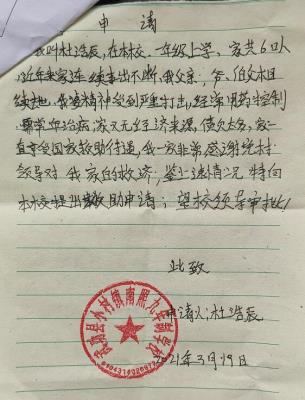 申 请
我叫杜浩辰,在本校一年级上学,家共6口
近年来家连续事出不断,我父亲,爷,伯父相
续 我婆精神受到严重打击,经常用药控制
治病,家又无经济来源,债欠太多,家一
直享受国家救助待遇,我一家非常感谢
领导对我家的救济,鉴上述情况,特向
本校提出救助申请;望校领导审批!
此致
申请人:杜浩辰
2021年3月19日
县 村镇南照九年制学校